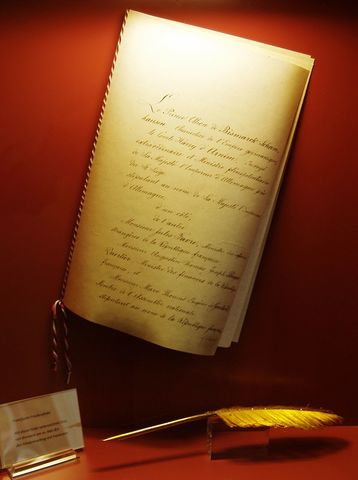 Le Prince Othon de Bismarck-Schön-
hausen Chancelier de l'Empire germanique,
le Comte Harry d'Arnim, Envoyé
extraordinaire et Ministre plénipotentiaire
de Sa Majesté l'Empereur d'Allemagne près
du St Siége,
stipulant au nom de Sa Majesté l'Empereur
d'Allemagne,
d'un côté,
de l'autre
Monsieur Jules Favre, Ministre des affaires
étrangères de la République française,
Monsieur Augustin Thomas Joseph Pouyer-
Quertier, Ministre des finances de la République
française, et
Monsieur Marc Thomas Eugène de Goulard,
Membre de l'Assemblée nationale,
stipulant au nom de la République française